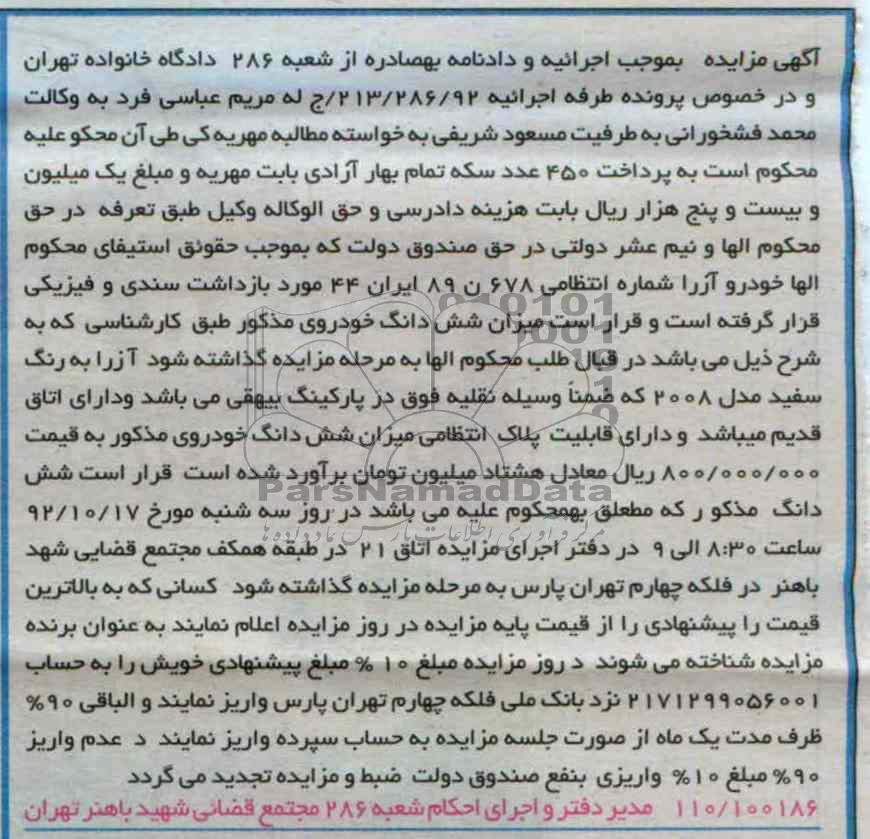 آگهی مزایده بموجب اجرائیه و دادنامه بهصادره از شعبه ۲۸۶ دادگاه خانواده تهران
و در خصوص پرونده طرفه اجرائیه ۲۱۳/۲۸۶/۹۲/ج له مریم عباسی فرد به وکالت
محمد فشخورانی به طرفیت مسعود شریفی به خواسته مطالبه مهریه کی طی آن محکو علیه
محکوم است به پرداخت ۴۵۰ عدد سکه تمام بهار آزادی بابت مهریه و مبلغ یک میلیون
و بیست و پنج هزار ریال بابت هزینه دادرسی و حق الوکاله وکیل طبق تعرفه در حق
محکوم الها و نیم عشر دولتی در حق صندوق دولت که بموجب حقوئق استیفای محکوم
الها خودرو آزرا شماره انتظامی ۶۷۸ ن ۸۹ ایران ۴۴ مورد بازداشت سندی و فیزیکی
قرار گرفته است و قرار است میزان شش دانگ خودروی مذکور طبق کارشناسی که به
شرح ذیل می باشد در قبال طلب محکوم الها به مرحله مزایده گذاشته شود آزرا به رنگ
سفید مدل ۲۰۰۸ که ضمناً وسیله نقلیه فوق در پارکینگ بیهقی می باشد ودارای اتاق
قدیم میباشد و دارای قابلیت پلاک انتظامی میزان شش دانگ خودروی مذکور به قیمت
۸۰۰/۰۰۰/۰۰۰ ریال معادل هشتاد میلیون تومان برآورد شده است قرار است شش
ParsNamadData
دانگ مذکو ر که مطعلق بهمحکوم علیه می باشد در روز سه شنبه مورخ ۹۲/۱۰/۱۷
مرکز فرآوری اطلاعات پارس نماد داده ها
ساعت ۸:۳۰ الی ۹ در دفتر اجرای مزایده اتاق ۲۱ در طبقه همکف مجتمع قضایی شهد
باهنر در فلکه چهارم تهران پارس به مرحله مزایده گذاشته شود کسانی که به بالاترین
قیمت را پیشنهادی را از قیمت پایه مزایده در روز مزایده اعلام نمایند به عنوان برنده
مزایده شناخته می شوند د روز مزایده مبلغ ۱۰ % مبلغ پیشنهادی خویش را به حساب
۲۱۷۱۲۹۹۰۵۶۰۰۱ نزد بانک ملی فلکه چهارم تهران پارس واریز نمایند و الباقی ۹۰%
ظرف مدت یک ماه از صورت جلسه مزایده به حساب سپرده واریز نمایند د عدم واریز
۹۰% مبلغ ۱۰% واریزی بنفع صندوق دولت ضبط و مزایده تجدید می گردد
۱۱۰/۱۰۰۱۸۶ مدیر دفتر و اجرای احکام شعبه ۲۸۶ مجتمع قضائی شهید باهنر تهران